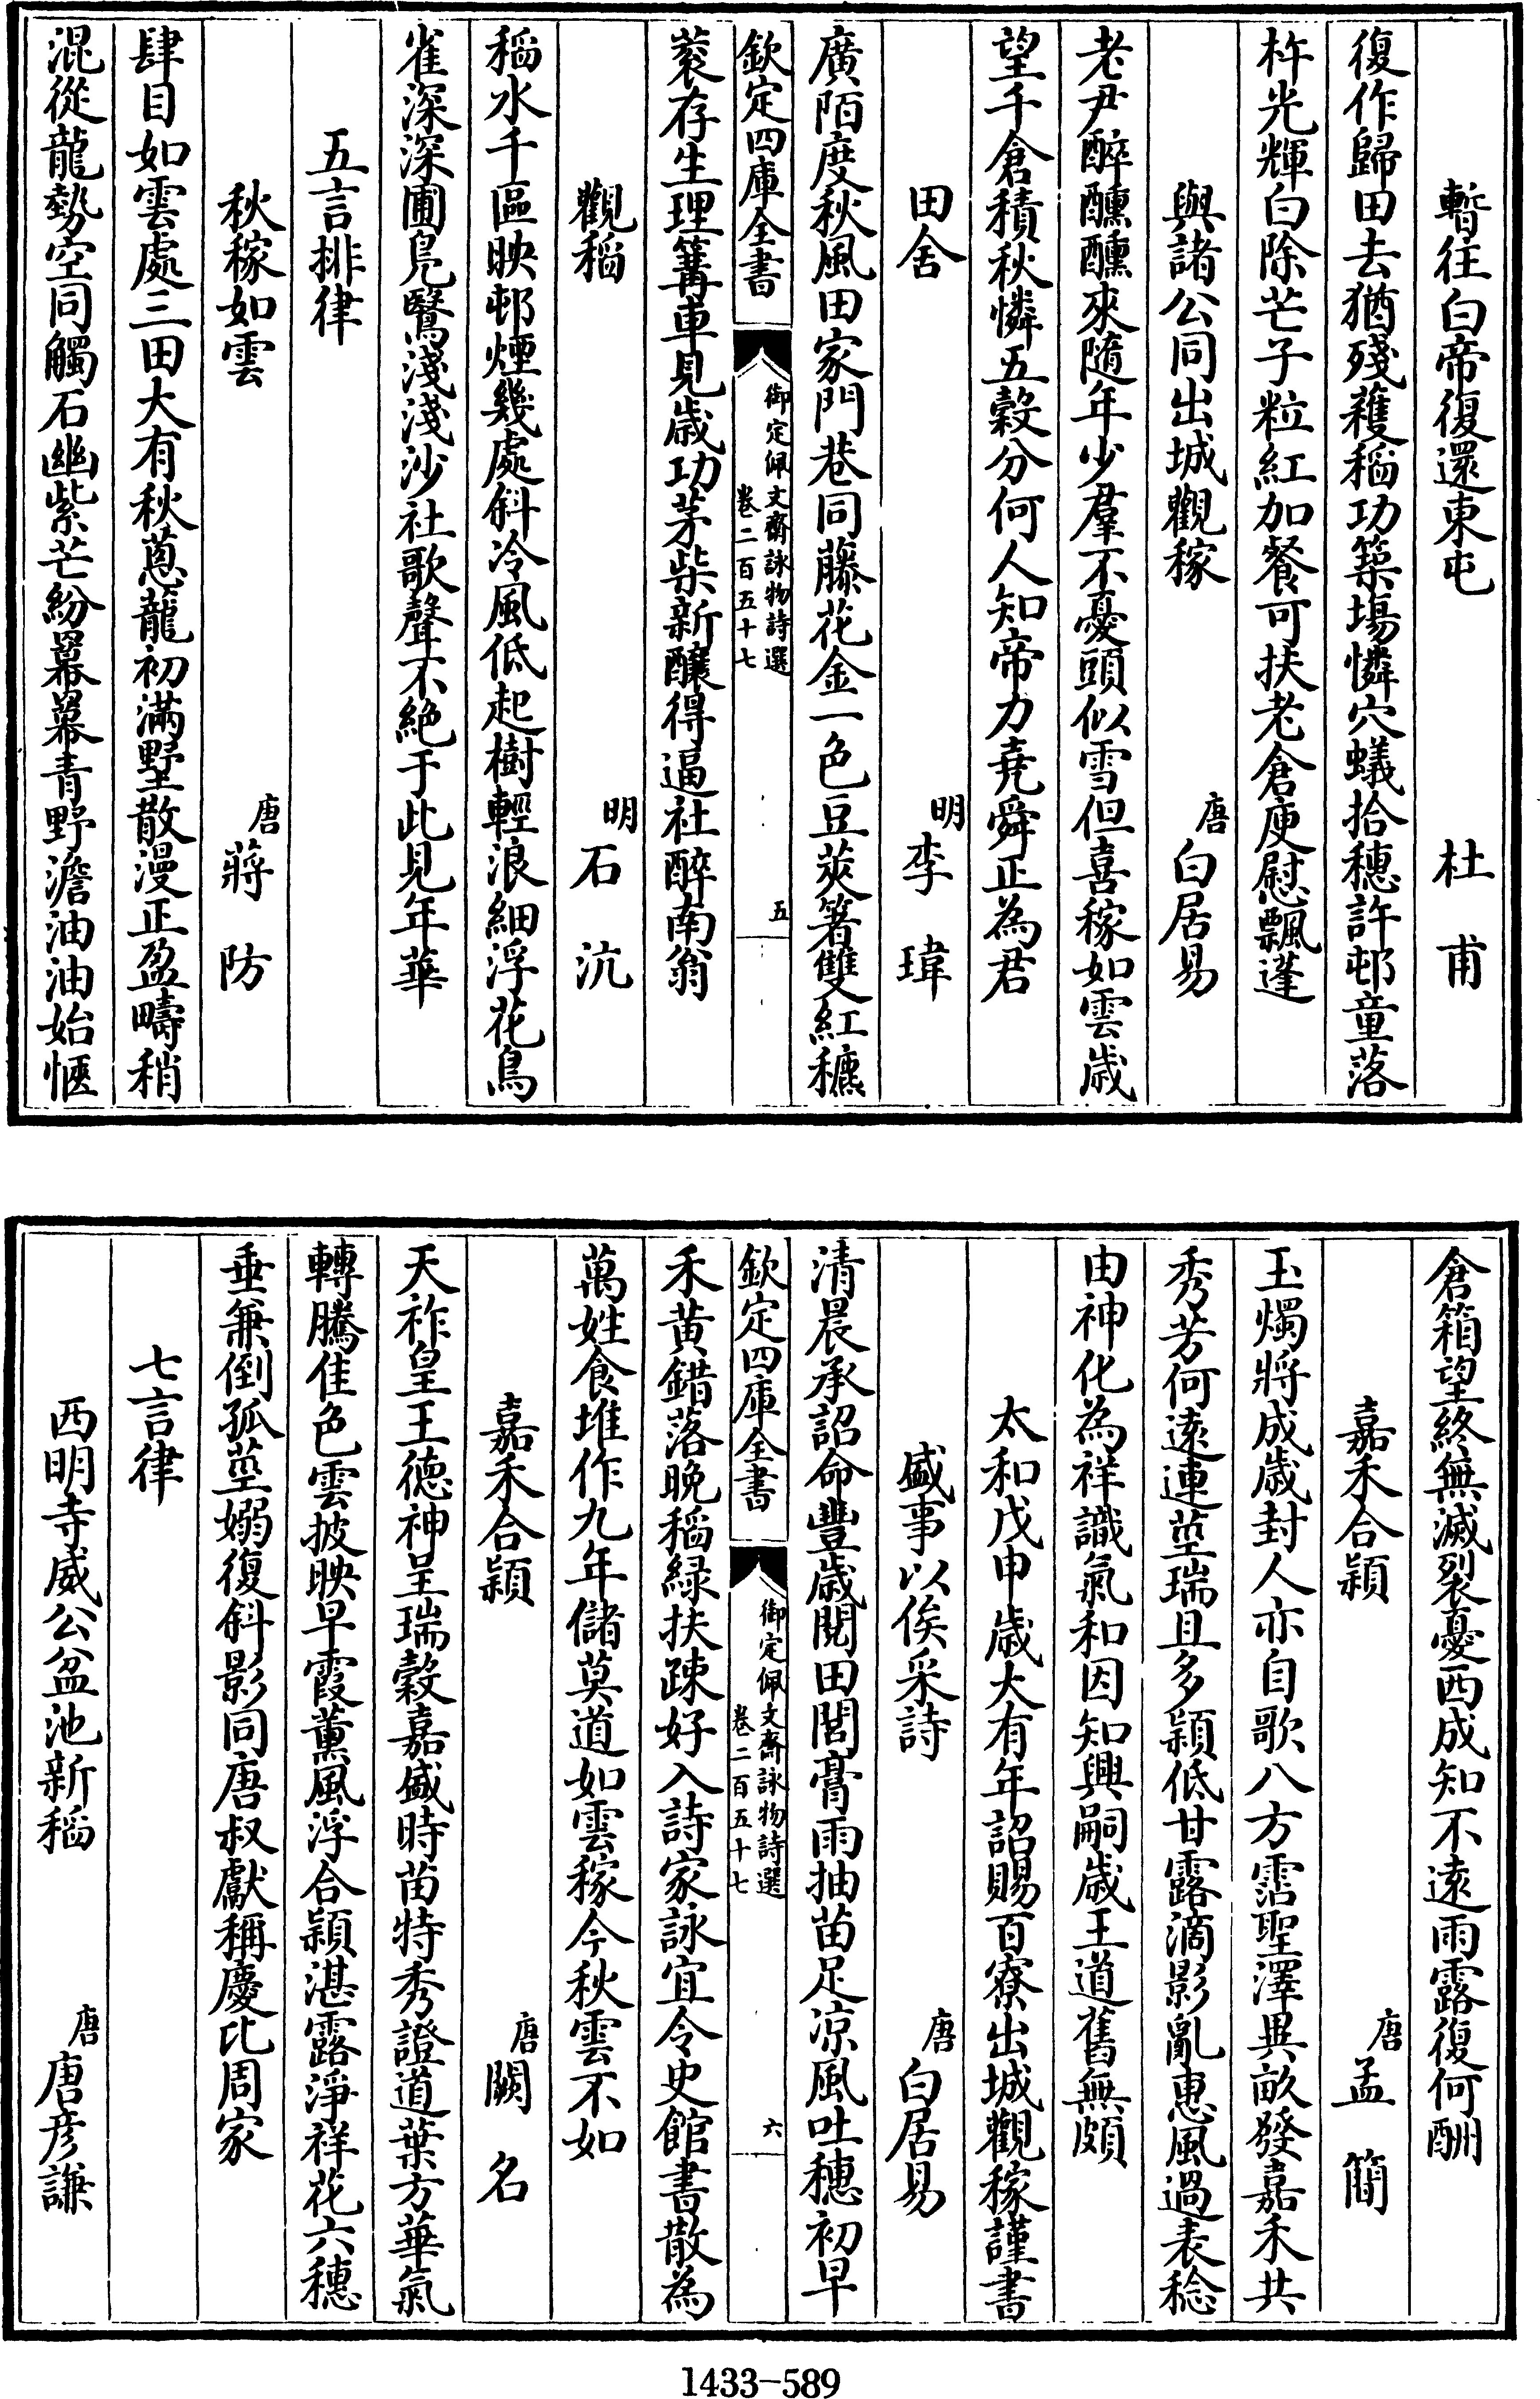 暫往白帝復還東屯　杜甫
復作歸田去猶殘穫稻功築塲憐穴蟻拾穗許邨童落
杵光輝白除芒子粒紅加餐可扶老倉庾慰飄蓬
與諸公同出城觀稼　唐白居易
老尹醉醺醺來隨年少羣不憂頭似雪但喜稼如雲歲
望千倉積秋憐五穀分何人知帝力堯舜正為君
田舍　明李瑋
廣陌度秋風田家門巷同藤花金一色豆莢箸雙紅穮
欽定四庫全書　御定佩文齋詠物詩選　卷二百五十七　五
蓘存生理篝車見歲功茅柴新釀得逼社醉南翁
觀稻　明石沆
稻水千區映邨煙幾處斜冷風低起樹輕浪細浮花鳥
雀深深圃鳧鷖淺淺沙社歌聲不絶于此見年華
五言排律
秋稼如雲　唐蔣防
肆目如雲處三田大有秋蔥蘢初滿墅散漫正盈疇稍
混從龍勢空同觸石幽紫芒紛羃羃青野澹油油始愜
倉箱望終無滅裂憂西成知不遠雨露復何酬
嘉禾合穎　唐孟簡
玉燭將成歲封人亦自歌八方霑聖澤異畝發嘉禾共
秀芳何遠連莖瑞且多穎低甘露滴影亂惠風過表稔
由神化為祥識氣和因知興嗣歲王道舊無頗
太和戊申歲大有年詔賜百寮出城觀稼謹書
盛事以俟采詩　唐白居易
清晨承詔命豐歲閱田閭膏雨抽苗足涼風吐穗初早
欽定四庫全書　御定佩文齋詠物詩選　卷二百五十七　六
禾黄錯落晚稻緑扶疎好入詩家詠宜令史館書散為
萬姓食堆作九年儲莫道如雲稼今秋雲不如
嘉禾合穎　唐闕名
天祚皇王德神呈瑞穀嘉盛時苗特秀證道葉方華氣
轉騰佳色雲披映早霞薫風浮合穎湛露淨祥花六穗
垂兼倒孤莖嫋復斜影同唐叔獻稱慶比周家
七言律
西明寺威公盆池新稻　唐唐彦謙
1433-589